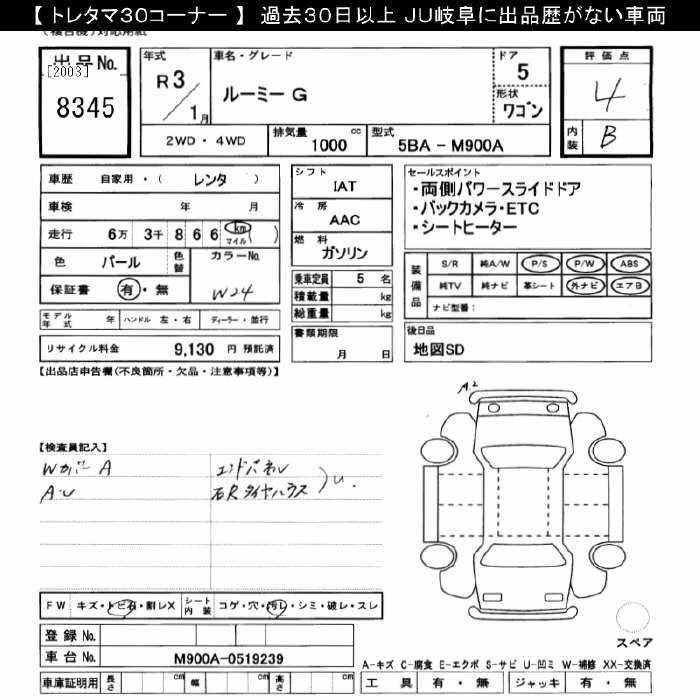 【 トレタマ30コーナー 】 過去30日以上 JU岐阜に出品歴がない車両
出品No. [2003] 8345
年式 R3/1月
車名・グレード ルーミー G
ドア 5
形状 ワゴン
評価点 4
内装 B
2WD ・ 4WD 排気量 1000 cc 型式 5BA - M900A
車歴 自家用・( レンタ )
車検 年 月
走行 6万 3千 8 6 6 ( km マイル )
色 パール 色替 カラーNo. W24
保証書 有・無
モデル年式 年 ハンドル 左・右 ディーラー・並行
リサイクル料金 9,130 円 預託済
シフト IAT
冷房 AAC
燃料 ガソリン
乗車定員 5 名
積載量 kg
総重量 kg
書類期限 月 日
セールスポイント
・両側パワースライドドア
・バックカメラ・ETC
・シートヒーター
装備品 S/R 純A/W P/S P/W ABS
純TV 純ナビ 革シート 外ナビ エアB
ナビ型番:
後日品
地図SD
【出品店申告欄(不良箇所・欠品・注意事項等)】
A2
【検査員記入】
Wカバー A エンドパネル
A・U 右Rタイヤハウス )U.
FW キズ・トビ石・割レX シート内装 コゲ・穴・汚レ・シミ・破レ・スレ
登録 No.
車台 No. M900A-0519239
車庫証明用 長さ cm 幅 cm 高さ cm
スペア
A-キズ C-腐食 E-エクボ S-サビ U-凹ミ W-補修 XX-交換済
工具 有 ・ 無 ジャッキ 有 ・ 無